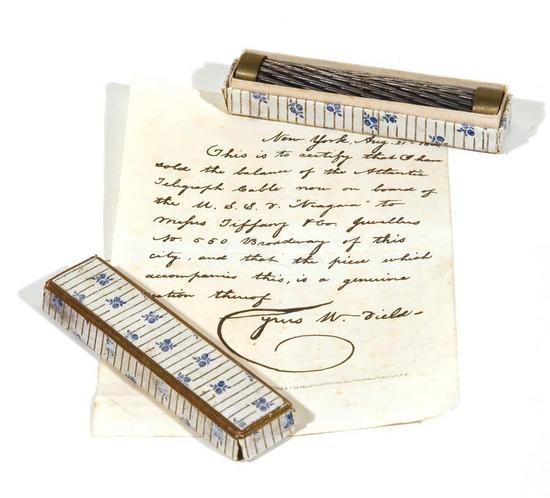 New York, Aug. 21st
This is to certify that I have
sold the balance of the Atlantic
Telegraph Cable now on board of
the U. S. S. F. "Niagara" to
Messrs Tiffany & Co. Jewellers
No. 550 Broadway of this
city, and that the piece which
accompanies this, is a genuine
section thereof.
Cyrus W. Field